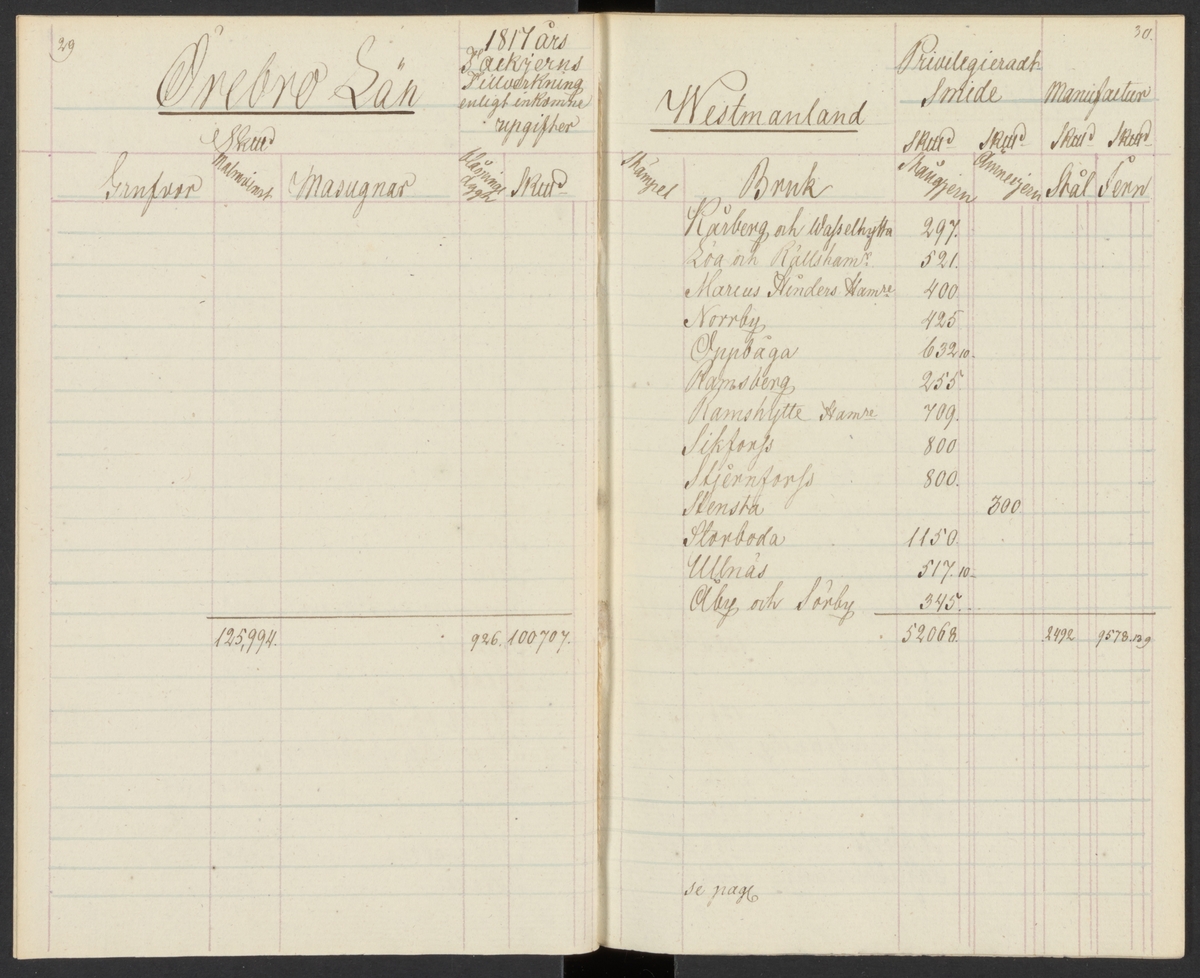 29
Örebro Län
1817 års
Tackjerns
Tillverkning
enligt inkomne
upgifter
Skud
Grufvor
Malmvinst
Masugnar
Blåsnings
dygn
Skud
125,994.
926. 100707.
30.
Westmanland
Privilegieradt
Smide
Manufactur
Skud Skud Skud Skud
Stämpel
Bruk
Stångjern
Ämnesjern
Stål Jern
Kårberg och Wasselhytta 297.
Löa och Rällshamre 521.
Marcus Hinders Hamre 400
Norrby 425
Oppboga 632 10.
Ramsberg 255
Ramshytte Hamre 709.
Sikforss 800
Stjernforss 800.
Stensta 300
Storboda 1150
Ullnäs 517. 10
Åby och Sörby 345.
52068. 2492 9578. 139
se page